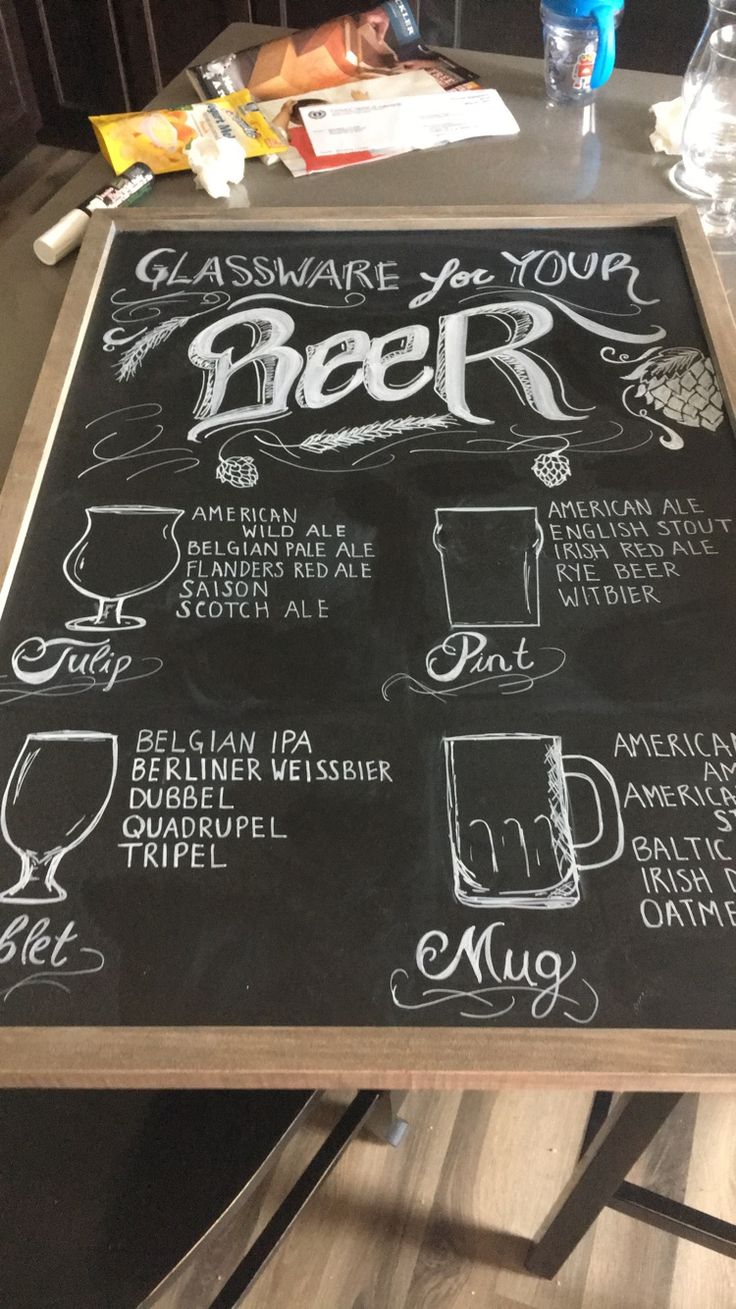 GLASSWARE for YOUR
BEER
AMERICAN
WILD ALE
BELGIAN PALE ALE
FLANDERS RED ALE
SAISON
SCOTCH ALE
Tulip
AMERICAN ALE
ENGLISH STOUT
IRISH RED ALE
RYE BEER
WITBIER
Pint
BELGIAN IPA
BERLINER WEISSBIER
DUBBEL
QUADRUPEL
TRIPEL
blet
AMERICAN
AM
AMERICA
ST
BALTIC
IRISH D
OATME
Mug